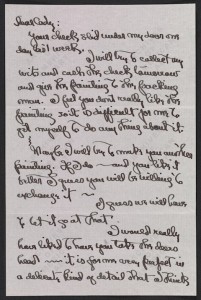 Dear Cady:
Your check slid under my door one
day last week.
I will try to collect my
wits and cash the check tomorrow
and give the painting to the packing
man. I feel you don't really like the
painting so it is difficult for me to
get myself to do anything about it.
Maybe I will try to make you another
painting. If I do — and you like it
better I guess you will be willing to
exchange it —
I guess we will have
to let it go at that.
I would really
have liked to have you take the deers
head — it is for me very perfect in
a delicate kind of detail that I think